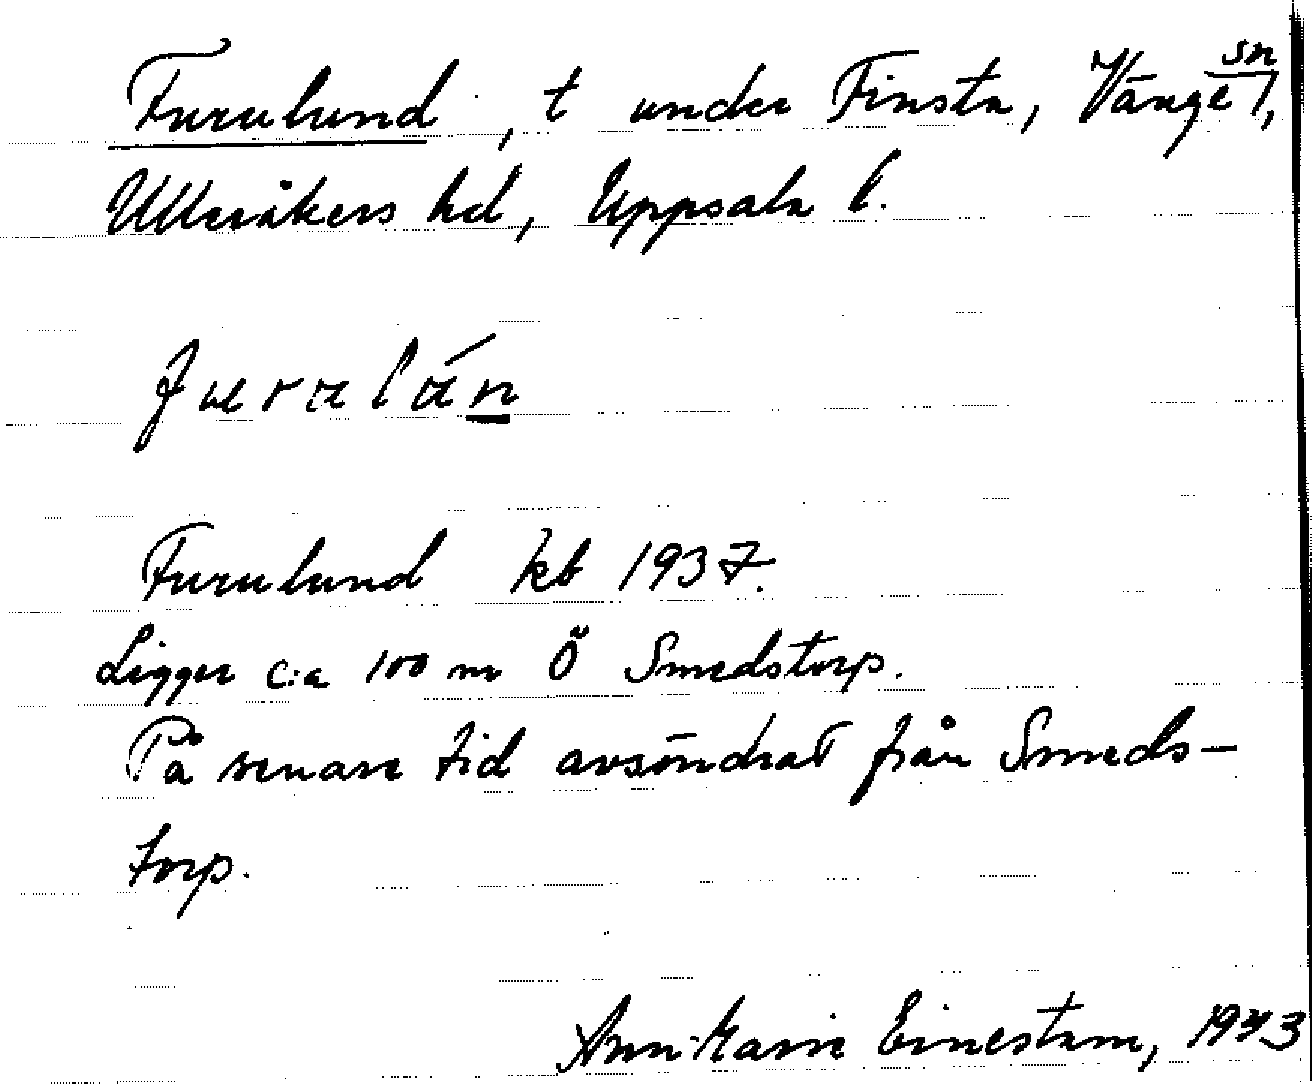 Furulund, t under Finsta, Vänge sn,
Ulleråkers hd, Uppsala l.
furalán
Furulund kb 1937.
Ligger c:a 100 m Ö Smedstorp.
På senare tid avsöndrat från Smeds-
torp.
Ann-Marie Einestam, 1943